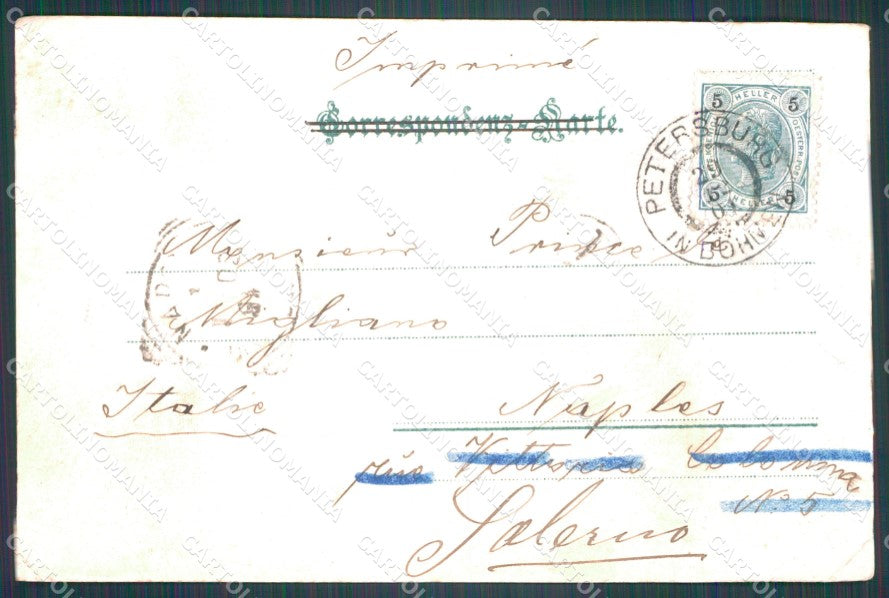 Imprimé
Correspondenz-Karte.
5 HELLER 5
OESTERR. POST
5 HELLER 5
PETERSBURG
IN BÖHMEN
Monsieur Prince de
Migliano
Italie
Naples
rue Vittoria Colonna
No. 5
Salerno
CARTOLINOMANIA